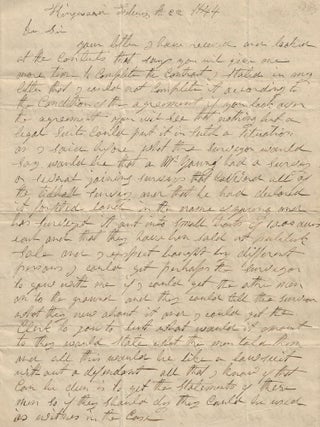 1844
Dear Sir
your letter I have received and looked
at the Contents that says you will give me
more time to Complete the Contract I Stated in my
letter that I could not Complete it according to
the Conditions of the agreement if you look over
the agreement you will see that nothing but a
legal Suit Could put it in Such a Situation
as I said before what the Surveyor would
Say would be that a Mr Young had a Survey
or joining Surveys that all of
the Survey and that he had declared
it forfeited in the name of young and
has Surveyed it out into Small tracts of
each and that they have been Sold at publick
Sale and I expect bought by different
persons I could get perhaps the Surveyor
to go with me if I could get the other men
on to the ground and they could tell the Surveyor
what they new about it and I could get the
Clerk to go to but what would it amount
to they would State what the men told them
and all this would be like a law suit
without a defendant all that I know that
Can be don is to get the Statements of these
men So if they should die they Could be used
as witness in the Case